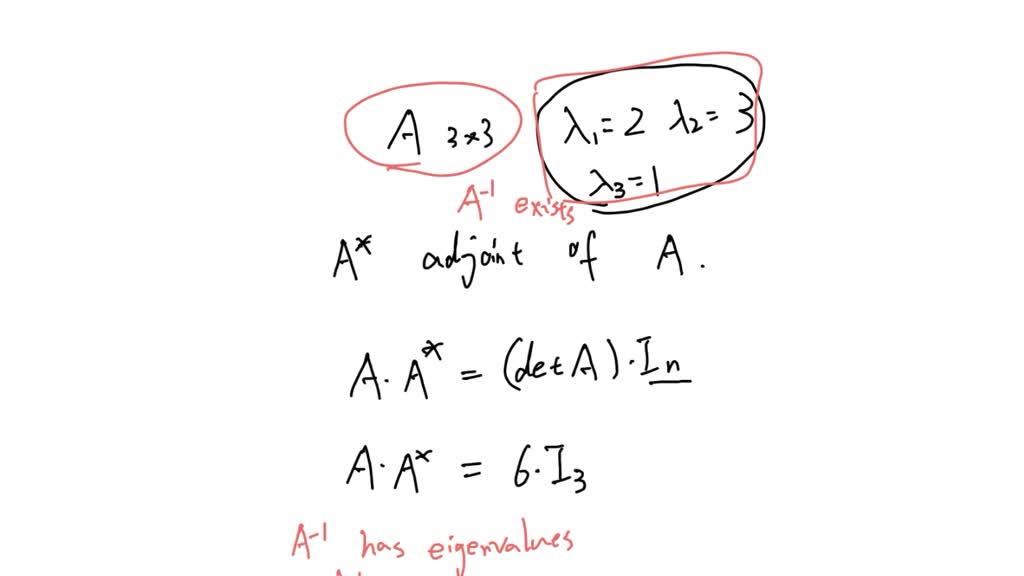 A 3×3 λ₁=2 λ₂=3
λ₃=1
A⁻¹ exists
A* adjoint of A.
A·A* = (det A)·Iₙ
A·A* = 6·I₃
A⁻¹ has eigenvalues